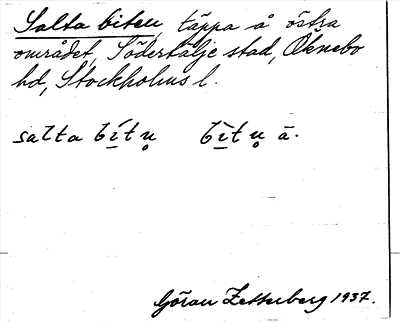 Salta biten, täppa å östra
området, Södertälje stad, Öknebo
hd, Stockholms l.
salta bi̲tu̥ bi̲tu̥ ā.
Göran Zetterberg 1937.